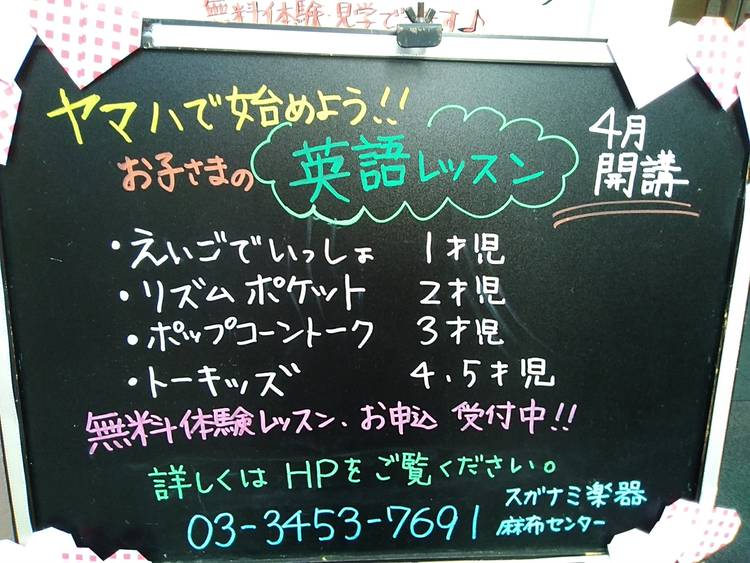 無料体験・見学できます♪
ヤマハで始めよう!!
お子さまの 英語レッスン 4月
開講
・えいごでいっしょ 1才児
・リズムポケット 2才児
・ポップコーントーク 3才児
・トーキッズ 4.5才児
無料体験レッスン、お申込 受付中!!
詳しくは HPをご覧ください。
スガナミ楽器
03-3453-7691 麻布センター